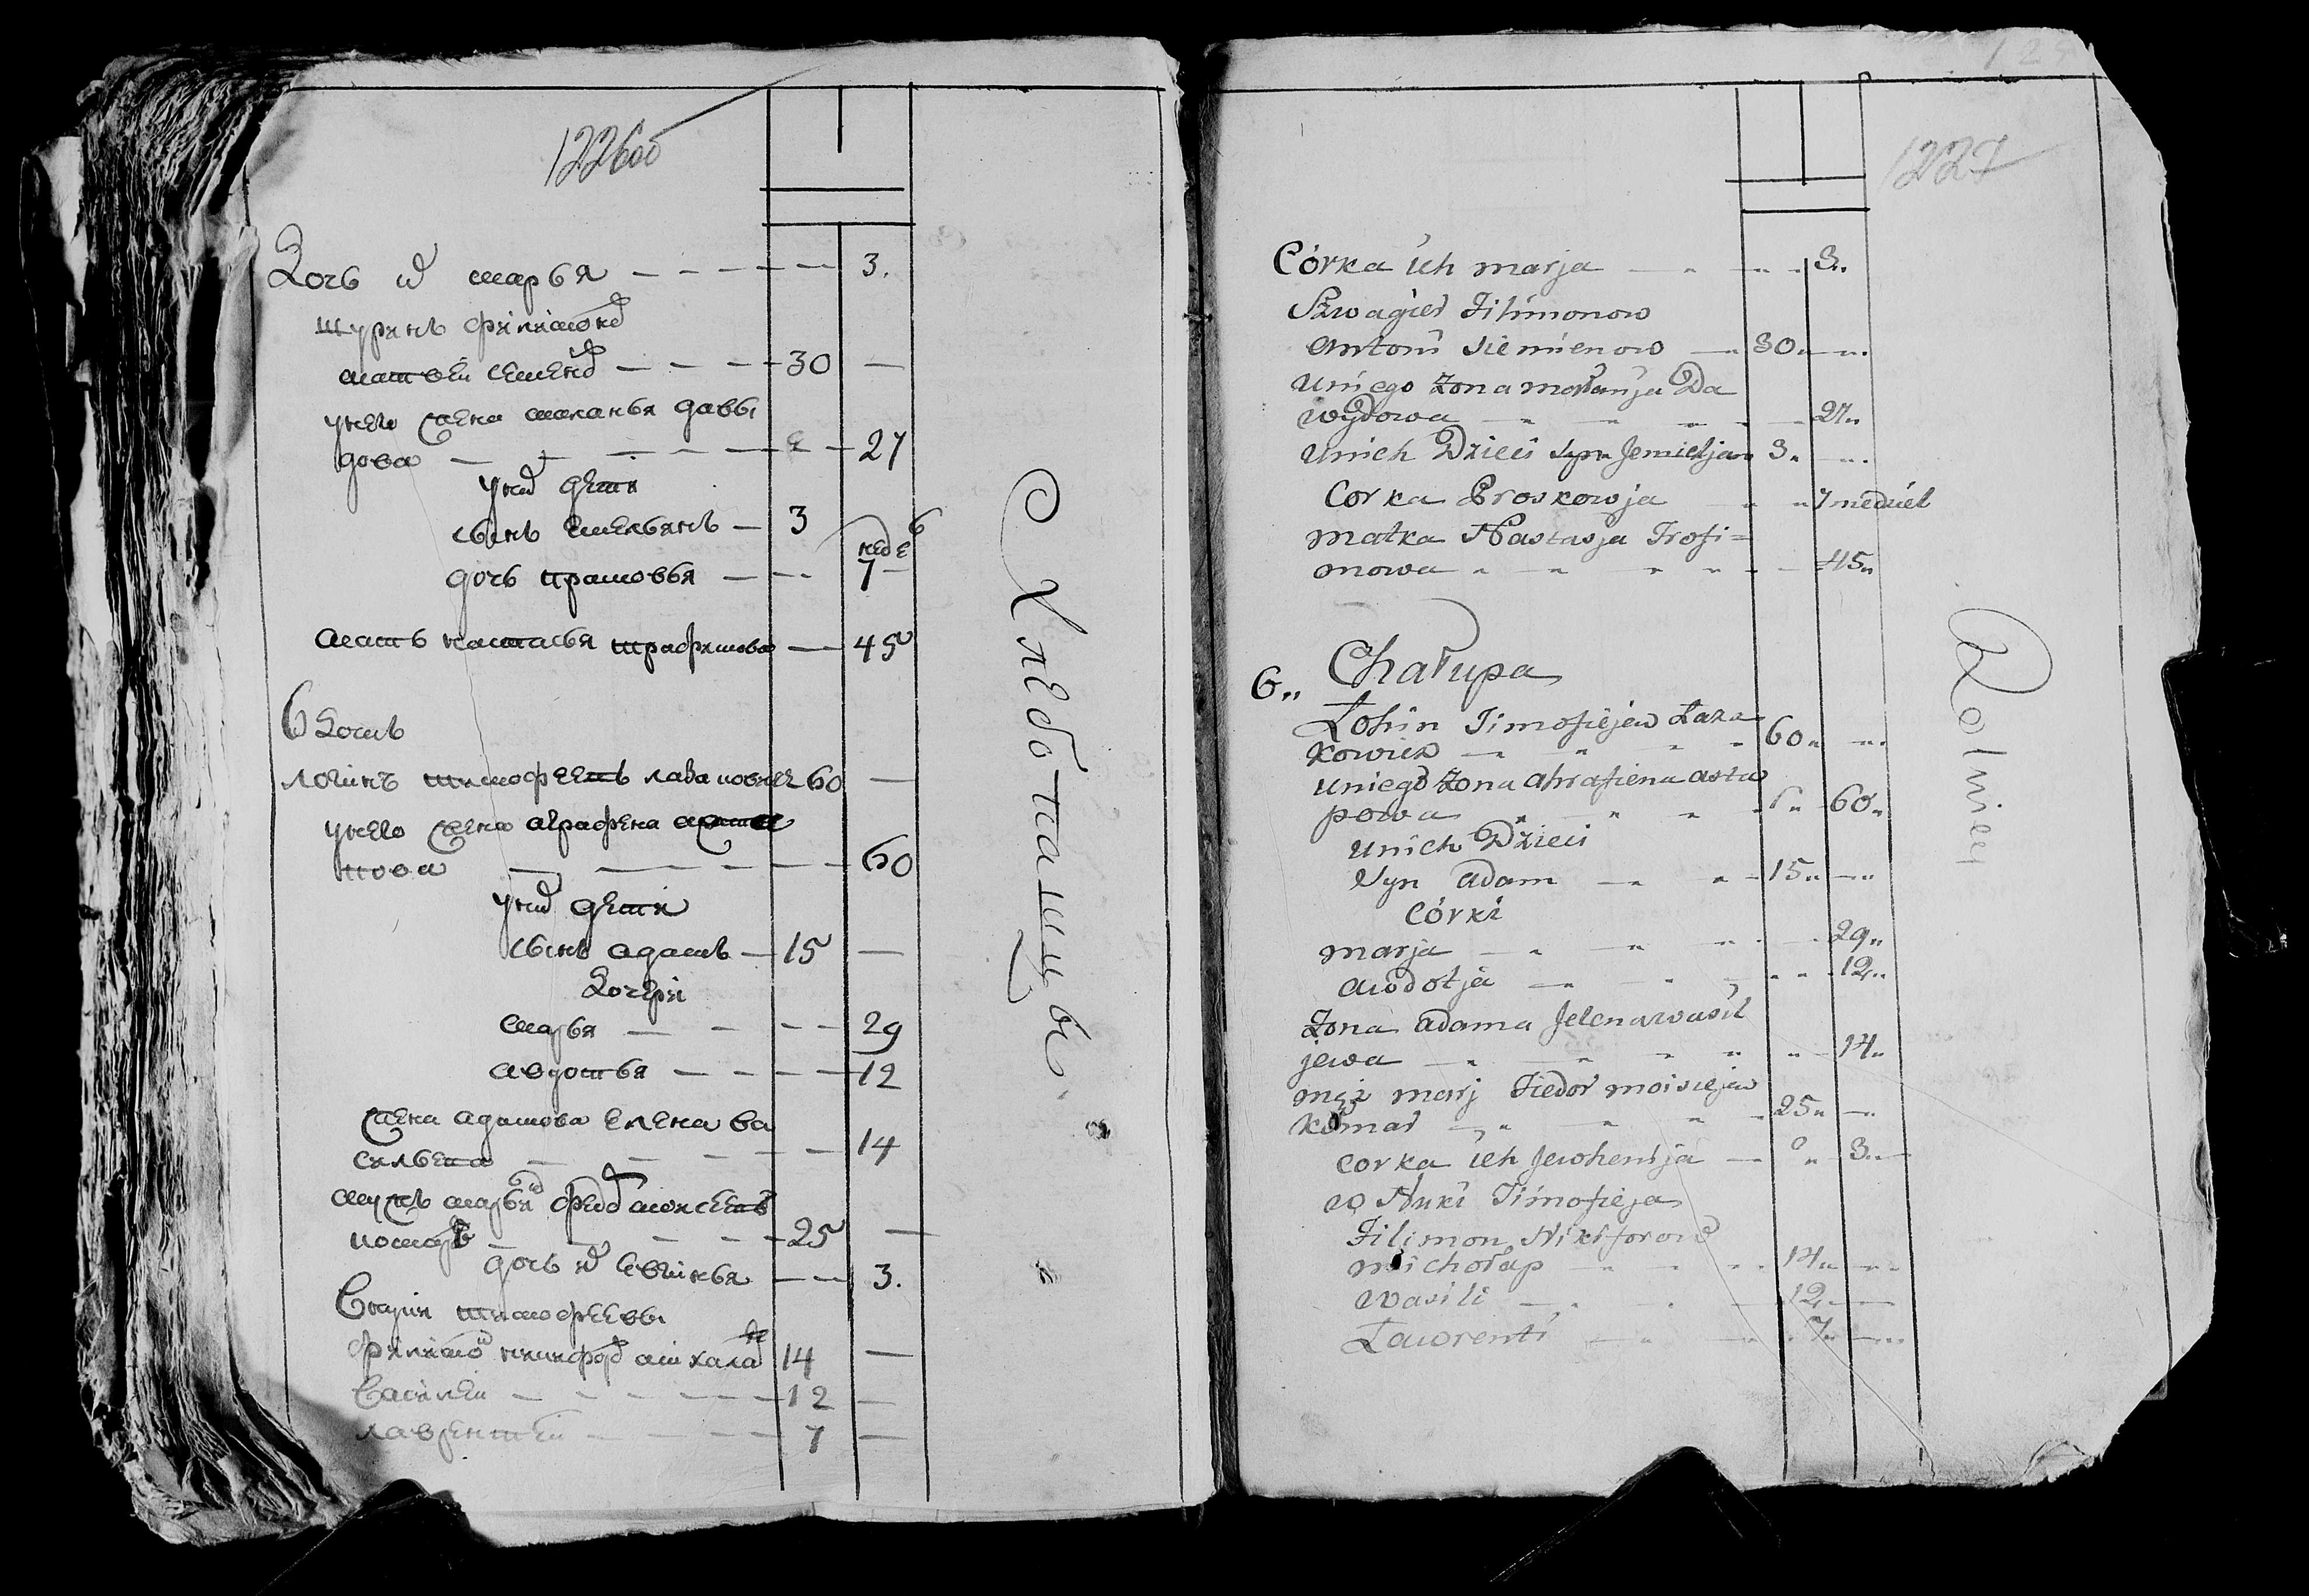 1226об
Дочь их марья — 3.
шуринъ филимоно
матвей семено — 30 —
унего жена маланья давы
дова — 27
у них дети
сынъ емельянъ — 3
неде
дочь прасковья — 7 —
мать настасья трафимова — 45
6 Домъ
логинъ тимофеевъ 60 —
унего жена аграфена
пова — 60
у них дети
сынъ адамъ — 15 —
Дочери
марья — 29
авдотья — 12
жена адамова елена ва
сильева — 14
мужъ марьи федо моисеевъ
комаръ — 25 —
дочь их евгинья — 3.
Внуки тимофеевы
филимо никифоро михала 14 —
Василеи — 12 —
лаврентеи — 7 —
Хлебопашцы.
1227
Córka ich marja — 3„
Szwagier Filimonow
Antoni Siemienow — 30„ —„
Uniego Żona mołanja Da
wydowa — 27„
Unich Dzieci syn Jemieljan 3„ —„
Corka Proskowja „ 7 niedziel
matka Nastasja Trofi=
mowa — 45„
6„ Chałupa
Łohin Timofiejew Łaza
kowicz — 60„ —„
uniego Żona ahrafiena asta
powa — „ 60„
unich Dzieci
Syn adam — 15„ —„
Córki
marja — 29„
awdotja — 12„
Żona adama Jelena wasil
jewa — 14„
mąż marj Fiedor moisiejew
Komar — 25„ —„
corka ich Jewhenija — „ 3„
w Nuki Timofieja
Filimon Nikiforow
michołap — 14„ —„
Wasili — 12„ —
Ławrenti — 7„ —„
Rolnicy